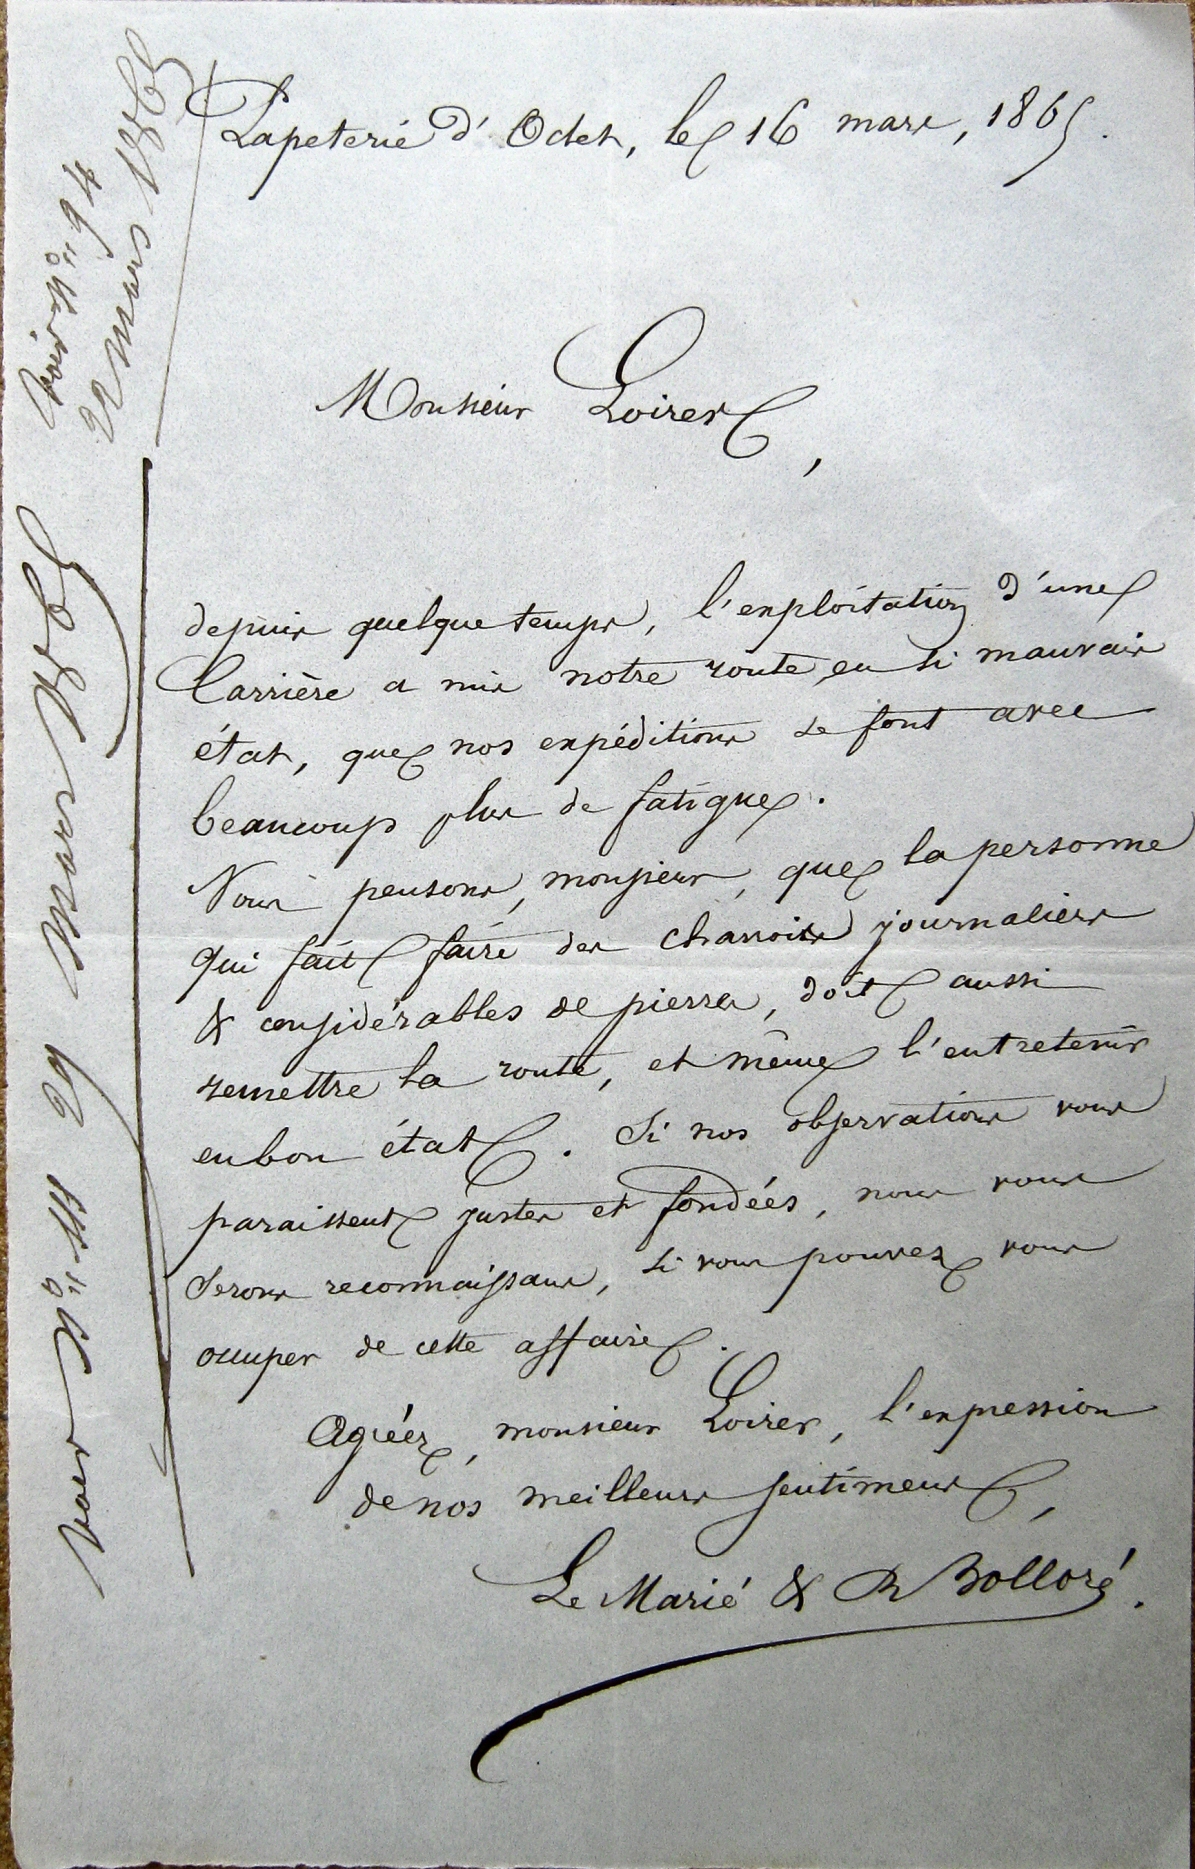 Papeterie d'Odet, le 16 mars, 1865.
Monsieur Loirer,
depuis quelque temps, l'exploitation d'une
Carrière a mis notre route en si mauvais
état, que nos expéditions se font avec
beaucoup plus de fatigue.
Nous pensons, monsieur, que la personne
qui fait faire des charrois journaliers
& considérables de pierres, doit aussi
remettre la route, et même l'entretenir
en bon état. Si nos observations vous
paraissent justes et fondées, nous vous
serons reconnaissans, si vous pouvez vous
occuper de cette affaire.
Agréez, monsieur Loirer, l'expression
de nos meilleurs sentimens,
Le Marié & R Bolloré.
Voir N° 94
22 Mars 1865
Voir N° 111 29 Mars 1865